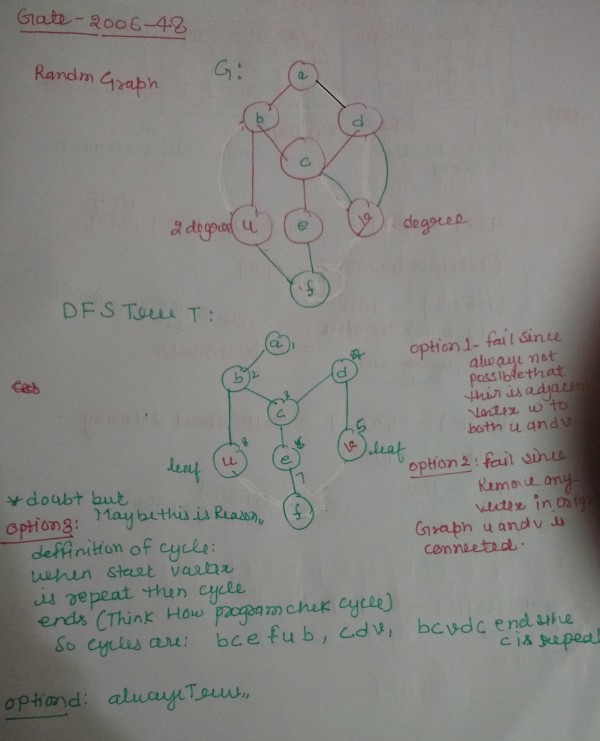 Gate-2006-48
Randm Graph
G:
a
b
d
c
2 degree
u
e
v
degree
f
DFS Tree T:
a 1
b 2
d
c 3
u 8
e 6
v 5
leaf
leaf
7
f
option 1- fail since
always not
possible that
this is adjacen
vertex w to
both u and v.
option 2: fail since
Remove any
vertex in orig
Graph u and v is
connected.
* doubt but
option 3: Maybe this is Reason,,
deffinition of cycle:
when start vartex
is repeat then cycle
ends (Think How program chek cycle)
So cycles are: bcefub, cdv, bcvdc end sine
c is repeat
option d: always True,,